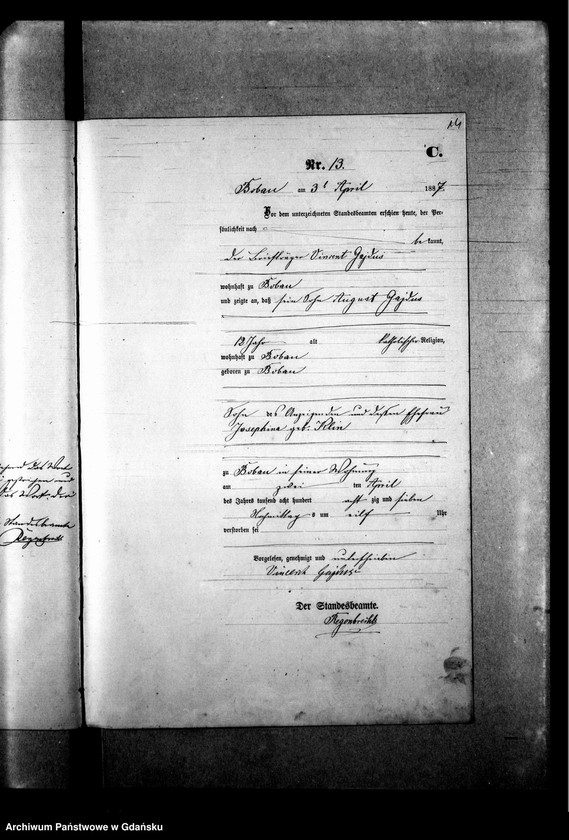 14
C.
Nr. 13.
Boban am 3t April 1887.
Vor dem unterzeichneten Standesbeamten erschien heute, der Per-
sönlichkeit nach
be kannt,
der Briefträger Vincent Gajdus
wohnhaft zu Boban
und zeigte an, daß sein Sohn August Gajdus
12 Jahr alt katholischer Religion,
wohnhaft zu Boban
geboren zu Boban
Sohn des Anzeigenden und dessen Ehefrau
Josephina geb: Klin
zu Boban in seiner Wohnung
am zwei ten April
des Jahres tausend acht hundert acht zig und sieben
Nachmittags um eilf Uhr
verstorben sei
Vorgelesen, genehmigt und unterschrieben
Vincent Gajdus
Der Standesbeamte.
Regenbrecht
das Wort
gestrichen und
das Wort der
Standesbeamte
Regenbrecht
Archiwum Państwowe w Gdańsku